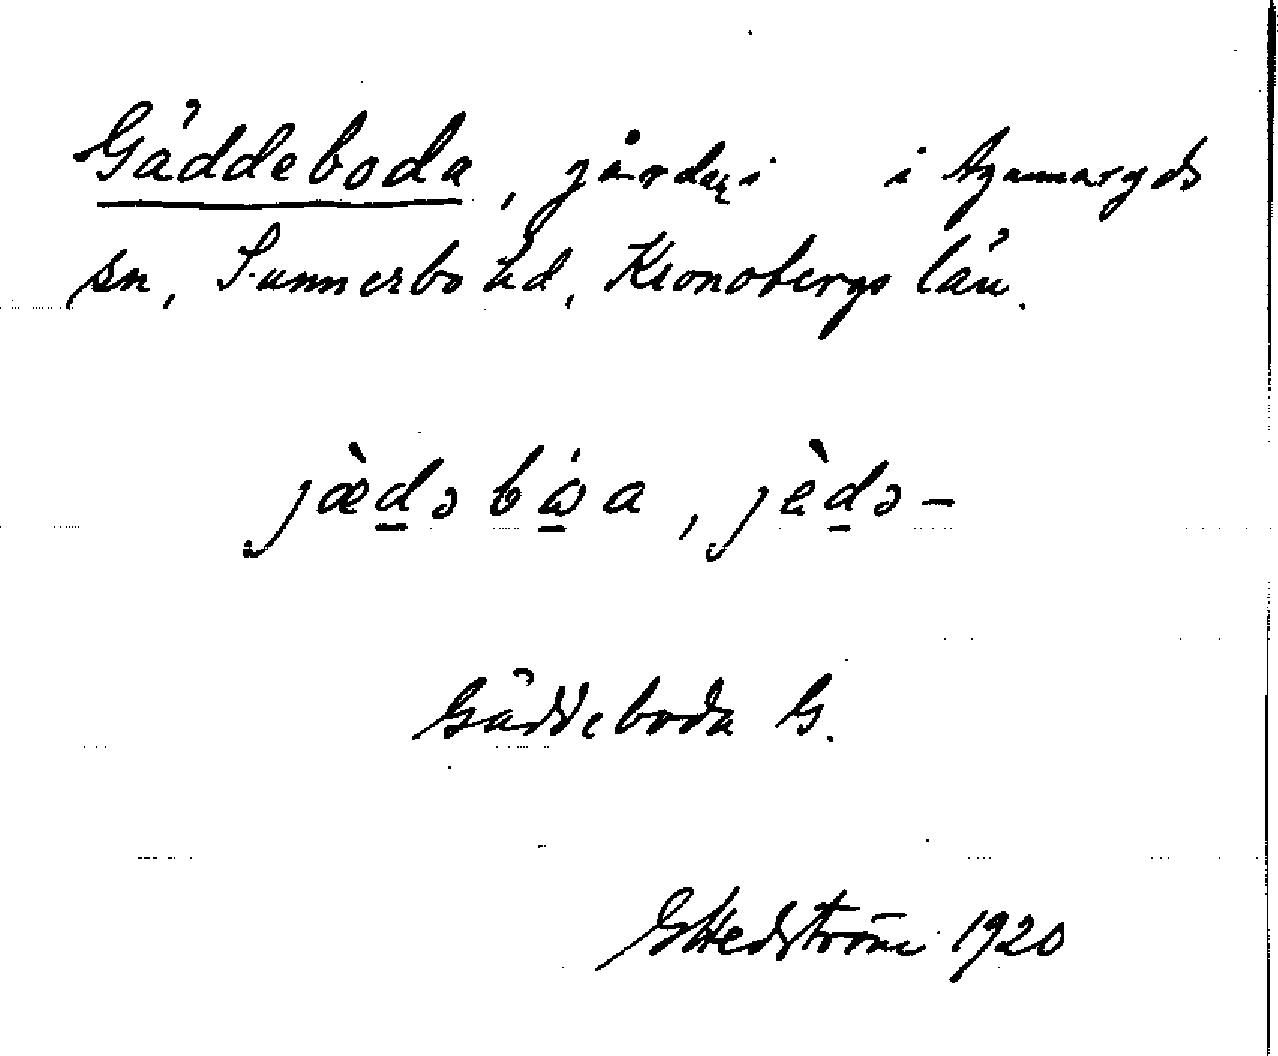 Gäddeboda, i Agunnaryds
sn, Sunnerbo hd, Kronobergs län.
jæ̀d̲ə bώ̲a, jèd̲ə –
Gäddeboda G.
GHedström 1920